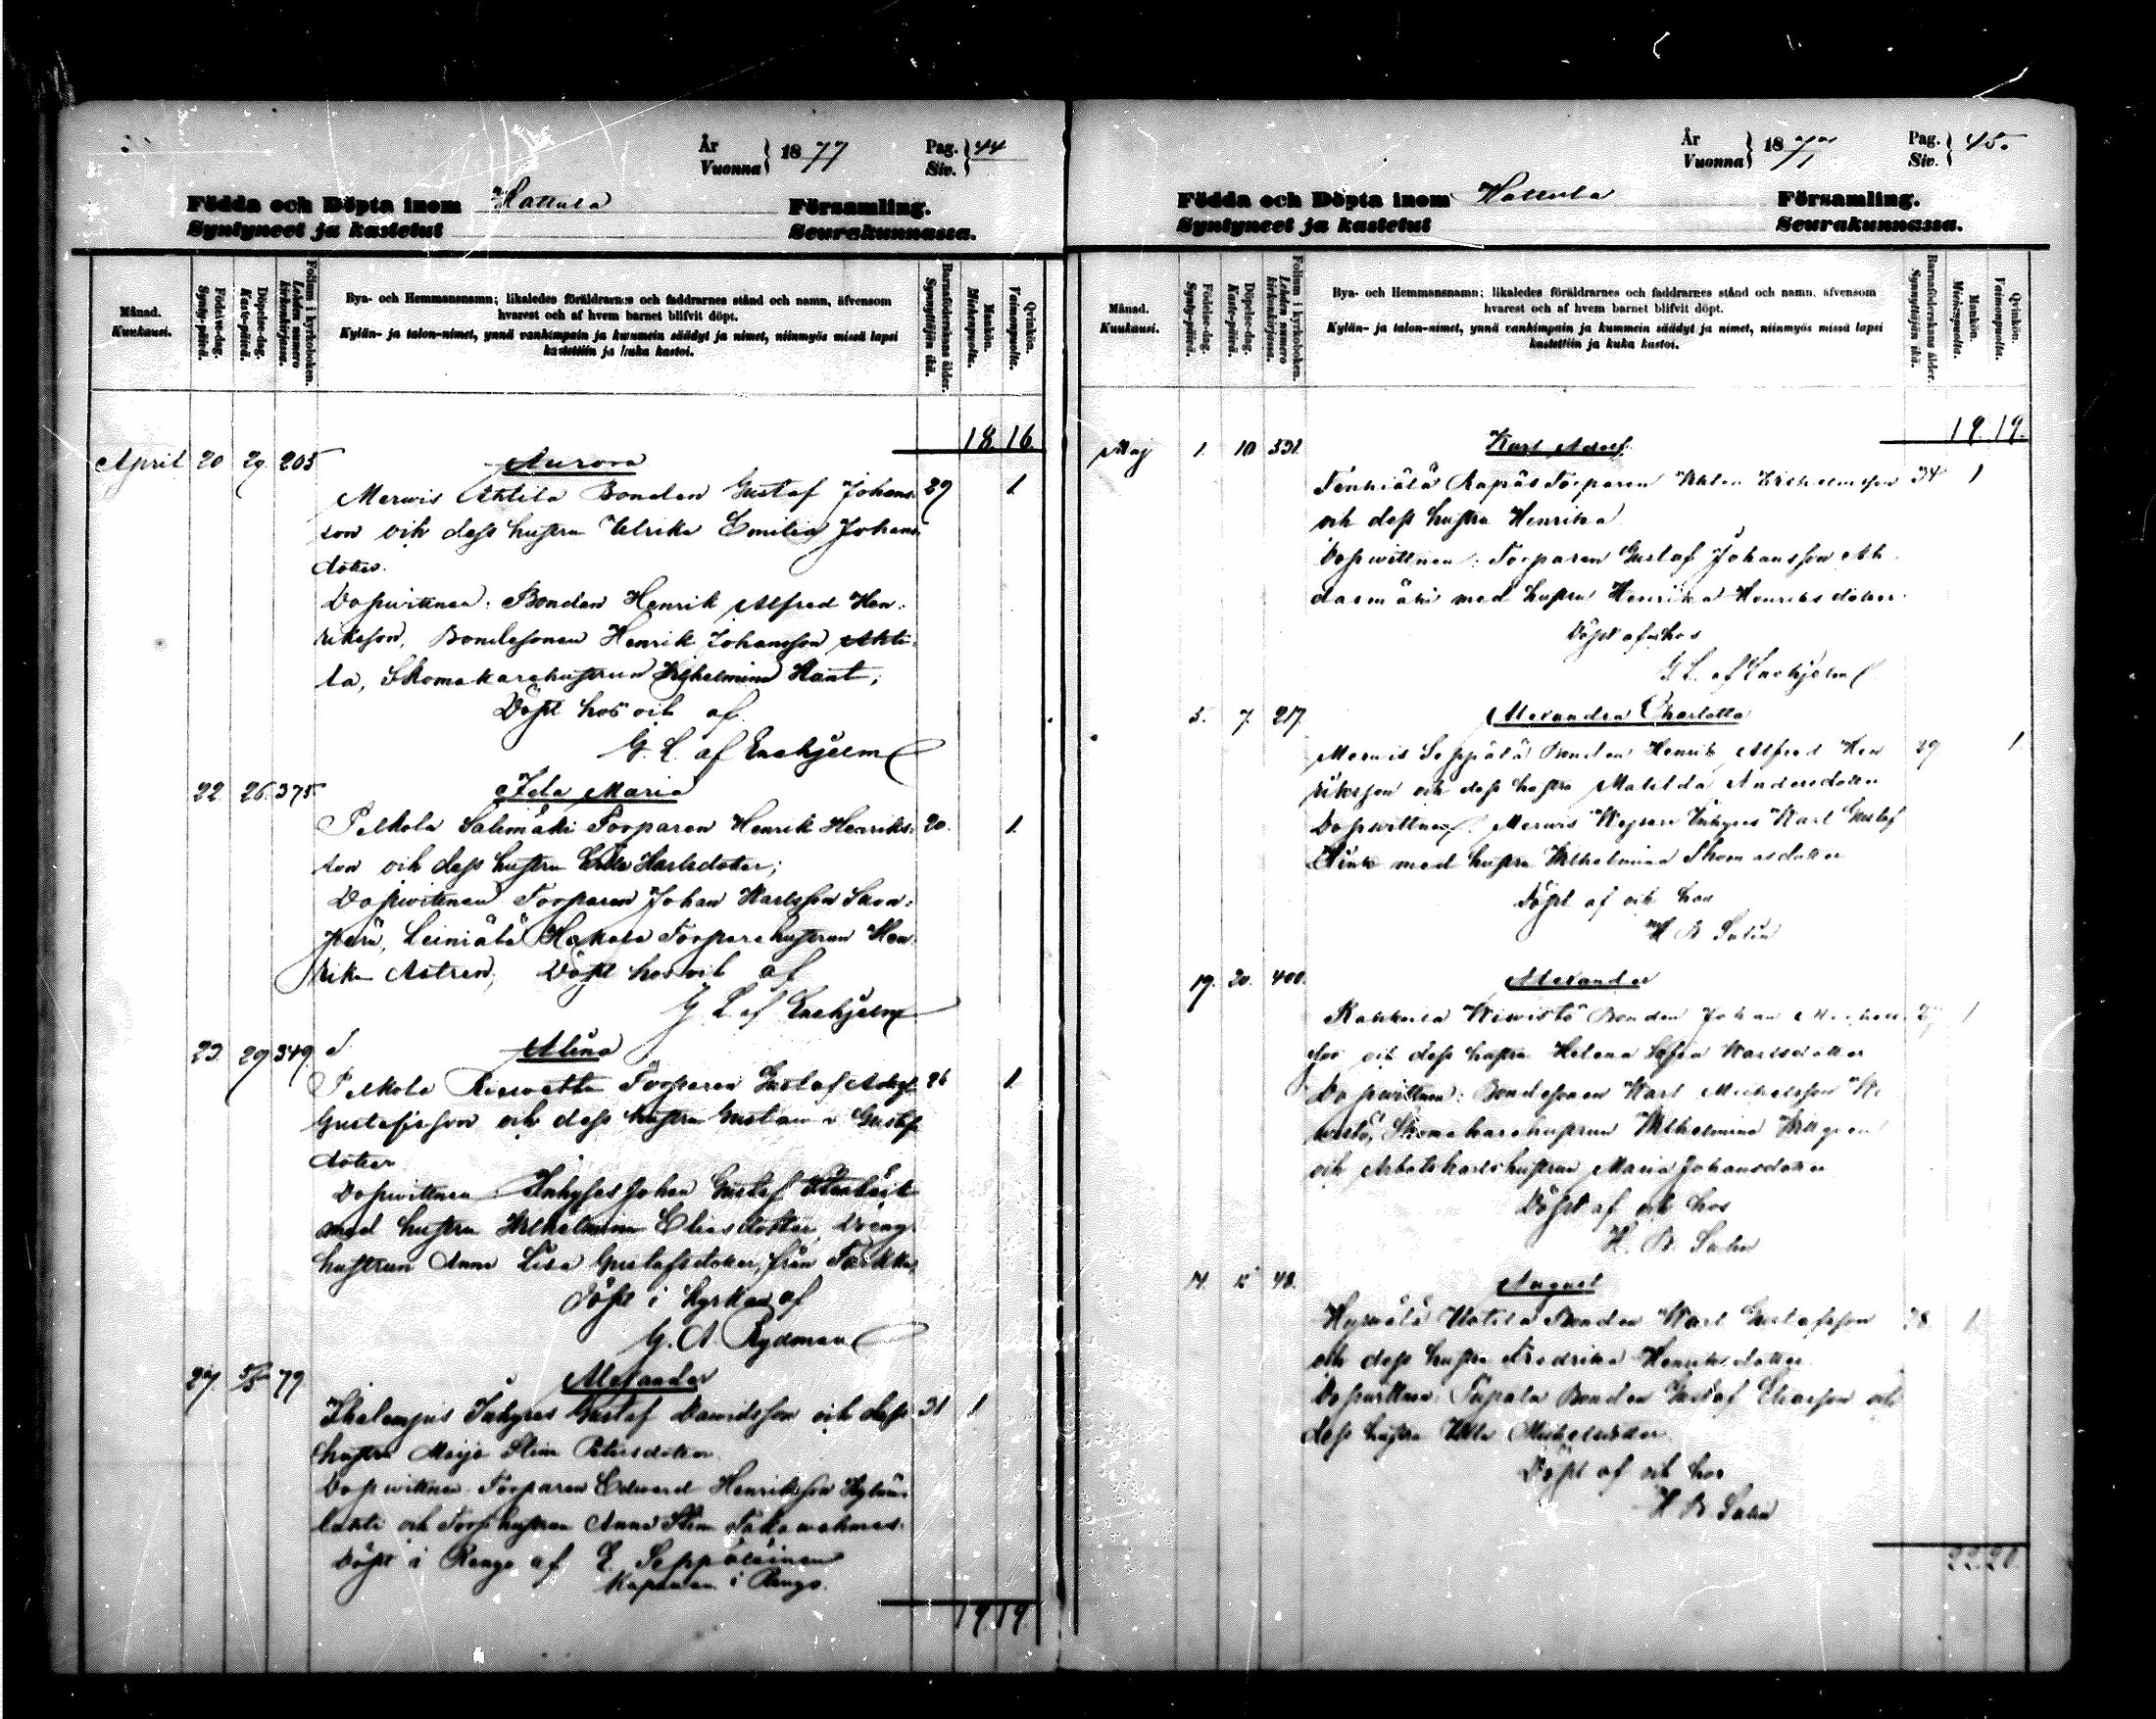 År
Vuonna
1877
Pag.
Siv.
44
Födda och Döpta inom Hattula Församling.
Syntyneet ja kastetut Seurakunnassa.
Månad.
Kuukausi.
Födelse-dag.
Synty-päivä.
Döpelse-dag.
Kaste-päivä.
Folium i kyrkoboken.
Lehden numero kirkonkirjassa.
Bya- och Hemmansnamn; likaledes föräldrarnes och faddrarnes stånd och namn, äfvensom
hvarest och af hvem barnet blifvit döpt.
Kylän- ja talon-nimet, ynnä vanhimpain ja kummein säädyt ja nimet, niinmyös missä lapsi
kastettiin ja kuka kastoi.
Barnaföderskans ålder.
Synnyttäjän ikä.
Mankön.
Miehenpuolta.
Qvinkön.
Vaimonpuolta.
18. 16.
April 20 29. 205 Aurora
Merwis Ahtila Bonden Gustaf Johans- 29 1
son och dess hustru Ulrika Emilia Johans
dotter.
Dopvittnen: Bonden Henrik Alfred Hen-
riksson, Bondesonen Henrik Johansson Ahti-
la, Skomakarehustrun Wilhelmina
Döpt hos och af
G. L. af Enehjelm
22. 26. 375 Ida Maria
Pelkola Salimäki Torparen Henrik Henriks- 20. 1
son och dess hustru Karlsdotter;
Dopvittnen Torparen Johan Karlsson
Leiniälä Hakala Torparehustrun Hen-
rika Döpt hos och af
G L af Enehjelm
23. 29 349. Alina
Pelkola Torparen Gustaf Adolf 26 1
Gustafsson och dess hustru Gustava Gustafs
dotter
Dopvittnen: Inhyses Johan Gustaf
med hustru Wilhelmina Eliasdotter, Dreng-
hustrun Anna Lisa Gustafsdotter, från
Döpt i Kyrkan af
G. A. Rydman
27. 5/5 79 Alexander
Inhyses Gustaf Davidsson och dess 31 1
hustru Maja Stina
Dopvittnen Torparen Edvard Henriksson
och Torp.hustrun Anna Stina
Döpt i Rengo af E. Seppäläinen
Kapellan i Rengo.
19. 19.
År
Vuonna
1877
Pag.
Siv.
45.
Födda och Döpta inom Hattula Församling.
Syntyneet ja kastetut Seurakunnassa.
Månad.
Kuukausi.
Födelse-dag.
Synty-päivä.
Döpelse-dag.
Kaste-päivä.
Folium i kyrkoboken.
Lehden numero kirkonkirjassa.
Bya- och Hemmansnamn; likaledes föräldrarnes och faddrarnes stånd och namn, äfvensom
hvarest och af hvem barnet blifvit döpt.
Kylän- ja talon-nimet, ynnä vanhimpain ja kummein säädyt ja nimet, niinmyös missä lapsi
kastettiin ja kuka kastoi.
Barnaföderskans ålder.
Synnyttäjän ikä.
Mankön.
Miehenpuolta.
Qvinkön.
Vaimonpuolta.
19. 19.
Maj 1. 10 331. Karl Adolf
Torparen Wilhelmsson 34 1
och dess hustru Henrika
Dopvittnen: Torparen Gustaf Johansson
med hustru Henrika Henriksdotter.
Döpt af och hos
G L. af Enehjelm
5. 7. 217. Alexandra Charlotta
Merwis Seppälä Bonden Henrik Alfred Hen 29 1
riksson och dess hustru Matilda Andersdotter
Dopvittnen: Merwis Inhyses Karl Gustaf
med hustru Wilhelmina Thomasdotter
Döpt af och hos
H B Salin
19. 20. 400. Alexander
Bonden Johan Michels 1
son och dess hustru Helena Sofia Karlsdotter
Dopvittnen: Bondesonen Karl Michelsson
Skomakarehustrun Wilhelmina
och Arbetskarlshustrun Maria Johansdotter
Döpt af och hos
H. B. Salin
48. August
Bonden Karl Gustafsson 1
och dess hustru Fredrika Henriksdotter.
Dopvittnen: Bonden Gustaf Eliasson och
dess hustru Ulla Michelsdotter.
Döpt af och hos
H B Salin
22. 20.